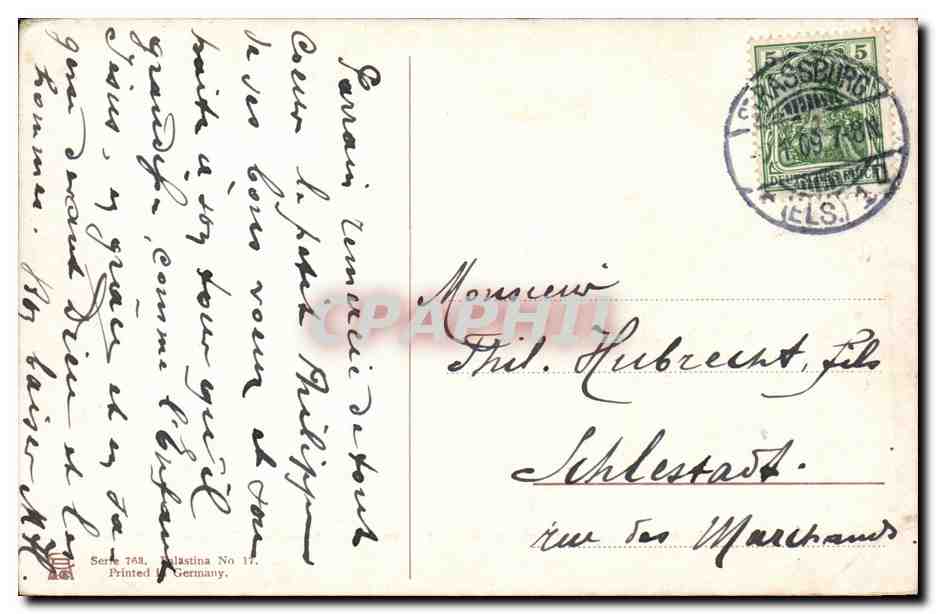 Parrain remercie de tout
Coeur le petit Philippe
de ses bons voeux et sou
haite à son tour qu'il
grandisse, comme l'Enfant
Jésus, en grâce et en sa-
gesse devant Dieu et les
hommes. Bon baiser
Serie 768. Palästina No 17.
Printed in Germany.
5 5
DEUTSCHES REICH
STRASSBURG
1.09.7-8N.
* (ELS.) 1
Monsieur
Phil. Hubrecht, fils
Schlestadt.
rue des Marchands
CPAPHIL